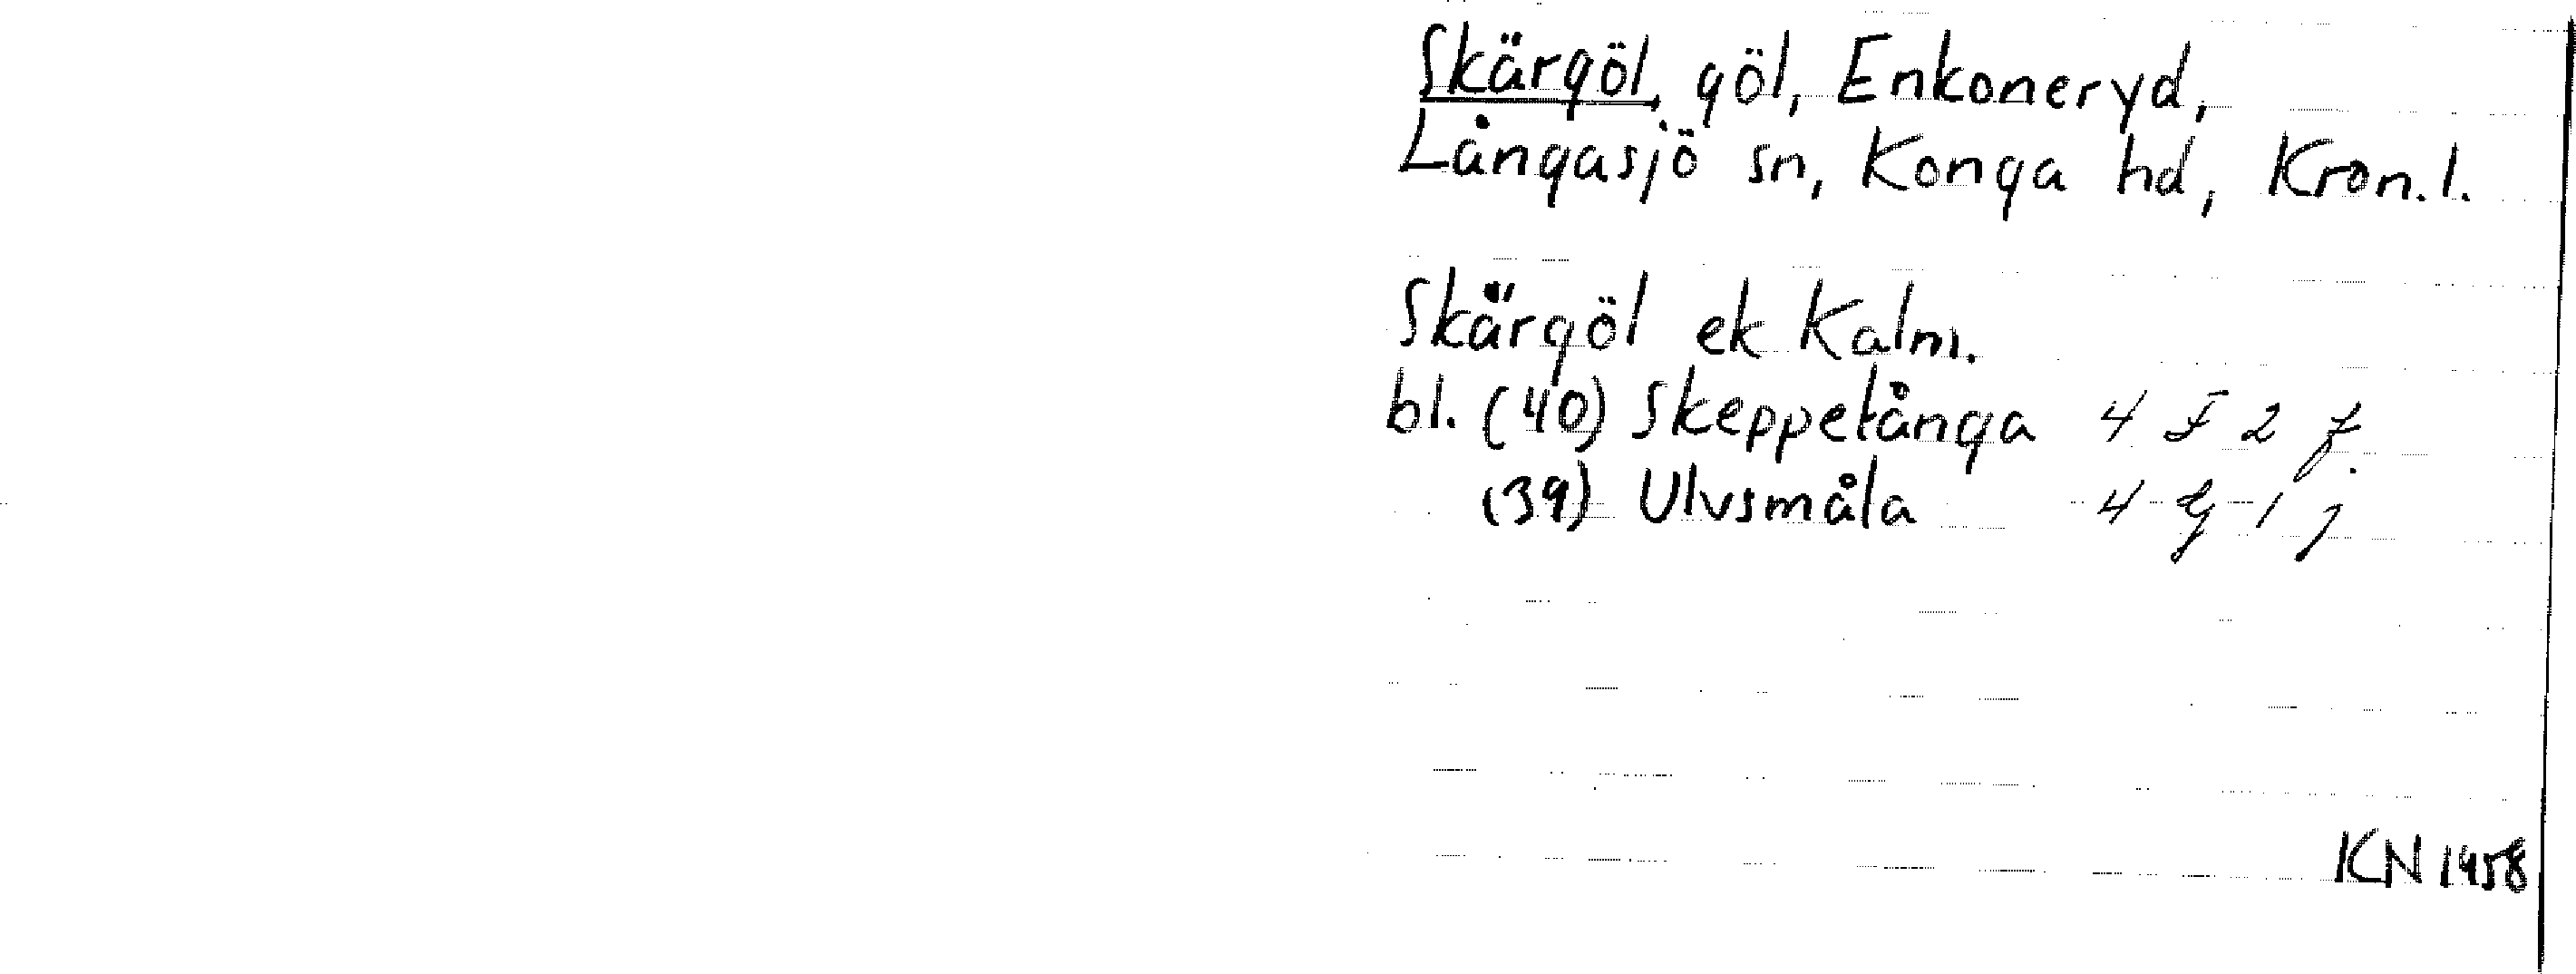 Skärgöl, göl, Enkoneryd,
Långasjö sn, Konga hd, Kron.l.
Skärgöl ek Kalm.
bl. (40) Skeppetånga 4 F 2 f.
(39) Ulvsmåla 4 G 1 j
KN 1958